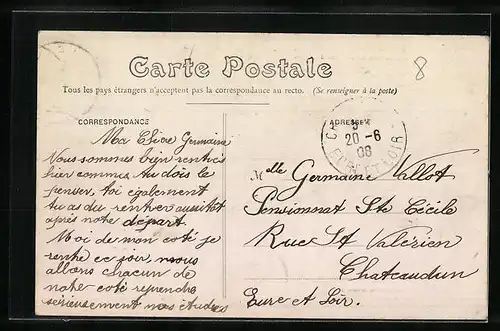 Carte Postale
Tous les pays étrangers n'acceptent pas la correspondance au recto. (Se renseigner à la poste)
CORRESPONDANCE
Ma Chère Germaine
Nous sommes bien rentrés
hier comme tu dois le
penser, toi également
tu as du rentrer aussitôt
après notre départ.
Moi de mon coté je
rentre ce soir, nous
allons chacun de
notre coté reprendre
sérieusement nos études
ADRESSE
20 -6
08
EURE-ET-LOIR
Melle Germaine Vallot
Pensionnat Ste Cécile
Rue St Valérien
Chateaudun
Eure et Loir.